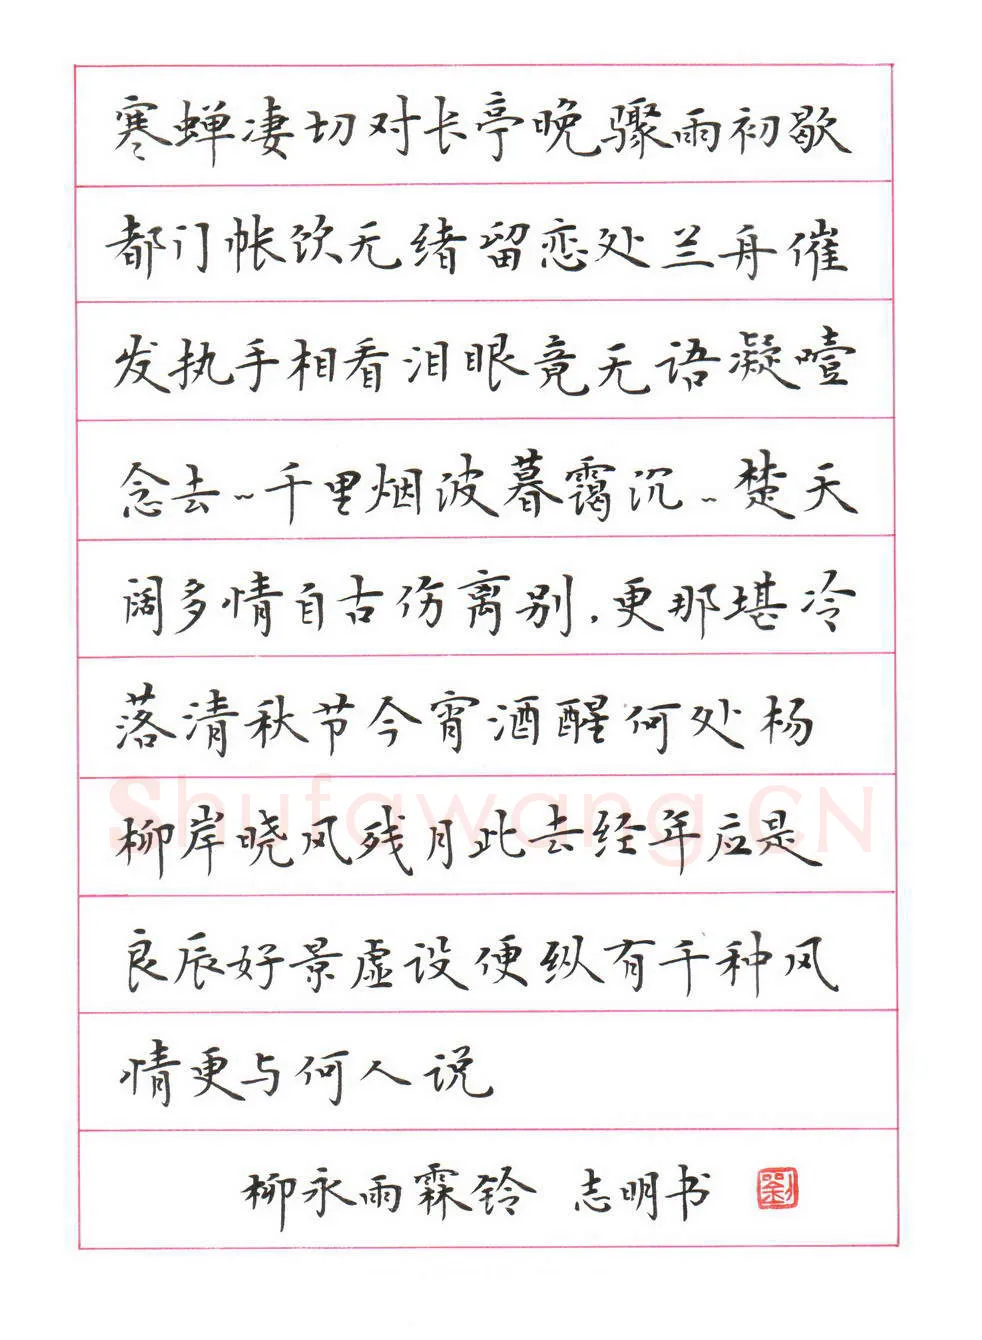 寒蝉凄切对长亭晚骤雨初歇
都门帐饮无绪留恋处兰舟催
发执手相看泪眼竟无语凝噎
念去~千里烟波暮霭沉~楚天
阔多情自古伤离别，更那堪冷
落清秋节今宵酒醒何处杨
柳岸晓风残月此去经年应是
良辰好景虚设便纵有千种风
情更与何人说
柳永雨霖铃 志明书
劉
Shufawang.CN